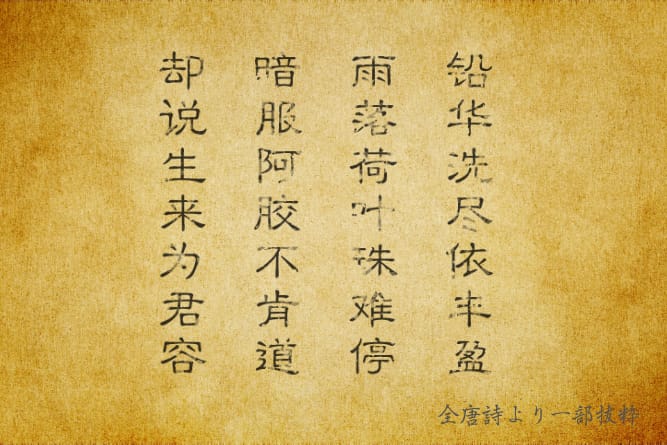 铅华洗尽依丰盈
雨落荷叶珠难停
暗服阿胶不肯道
却说生来为君容
全唐詩より一部抜粋